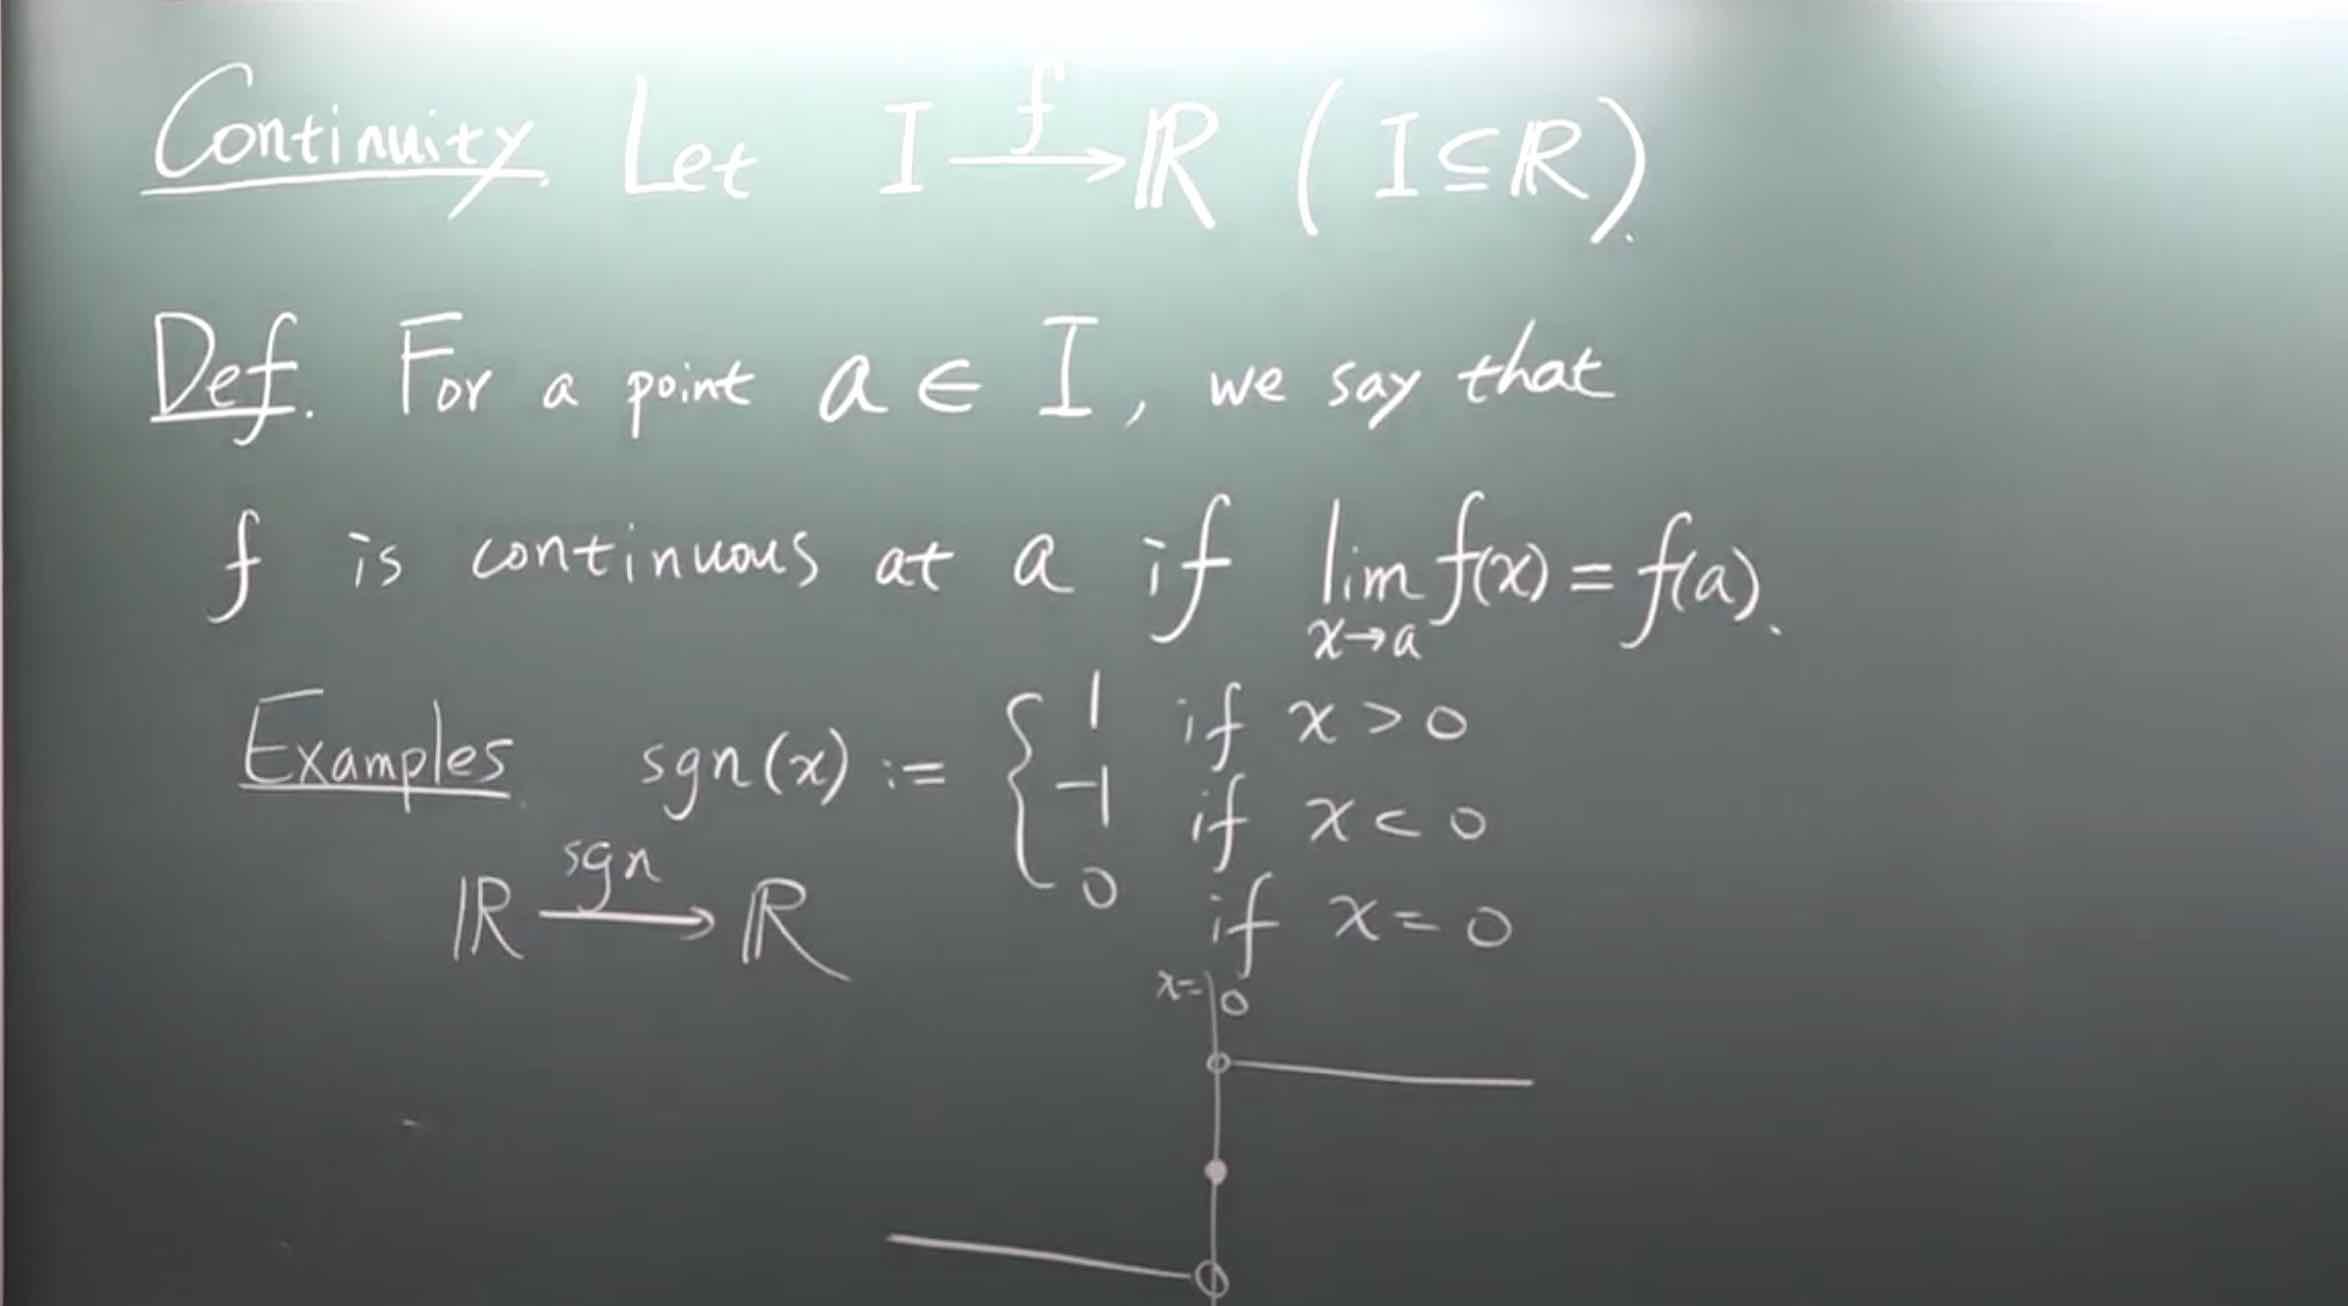 Continuity. Let I \xrightarrow{f} ℝ (I ⊆ ℝ).
Def. For a point a ∈ I, we say that
f is continuous at a if lim_{x→a} f(x) = f(a).
Examples. sgn(x) := { 1 if x > 0
-1 if x < 0
0 if x = 0
ℝ \xrightarrow{sgn} ℝ
x=0